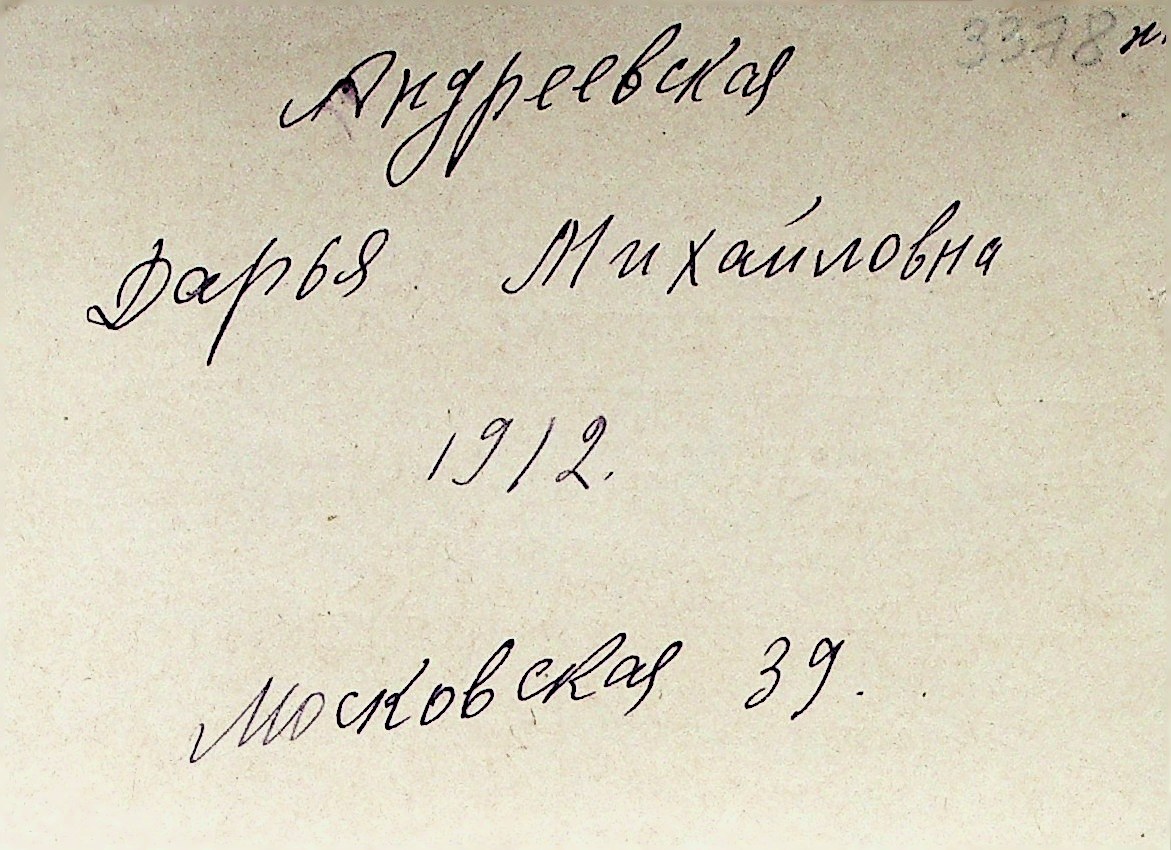 3378 н.
Андреевская
Дарья Михайловна
1912.
Московская 39.